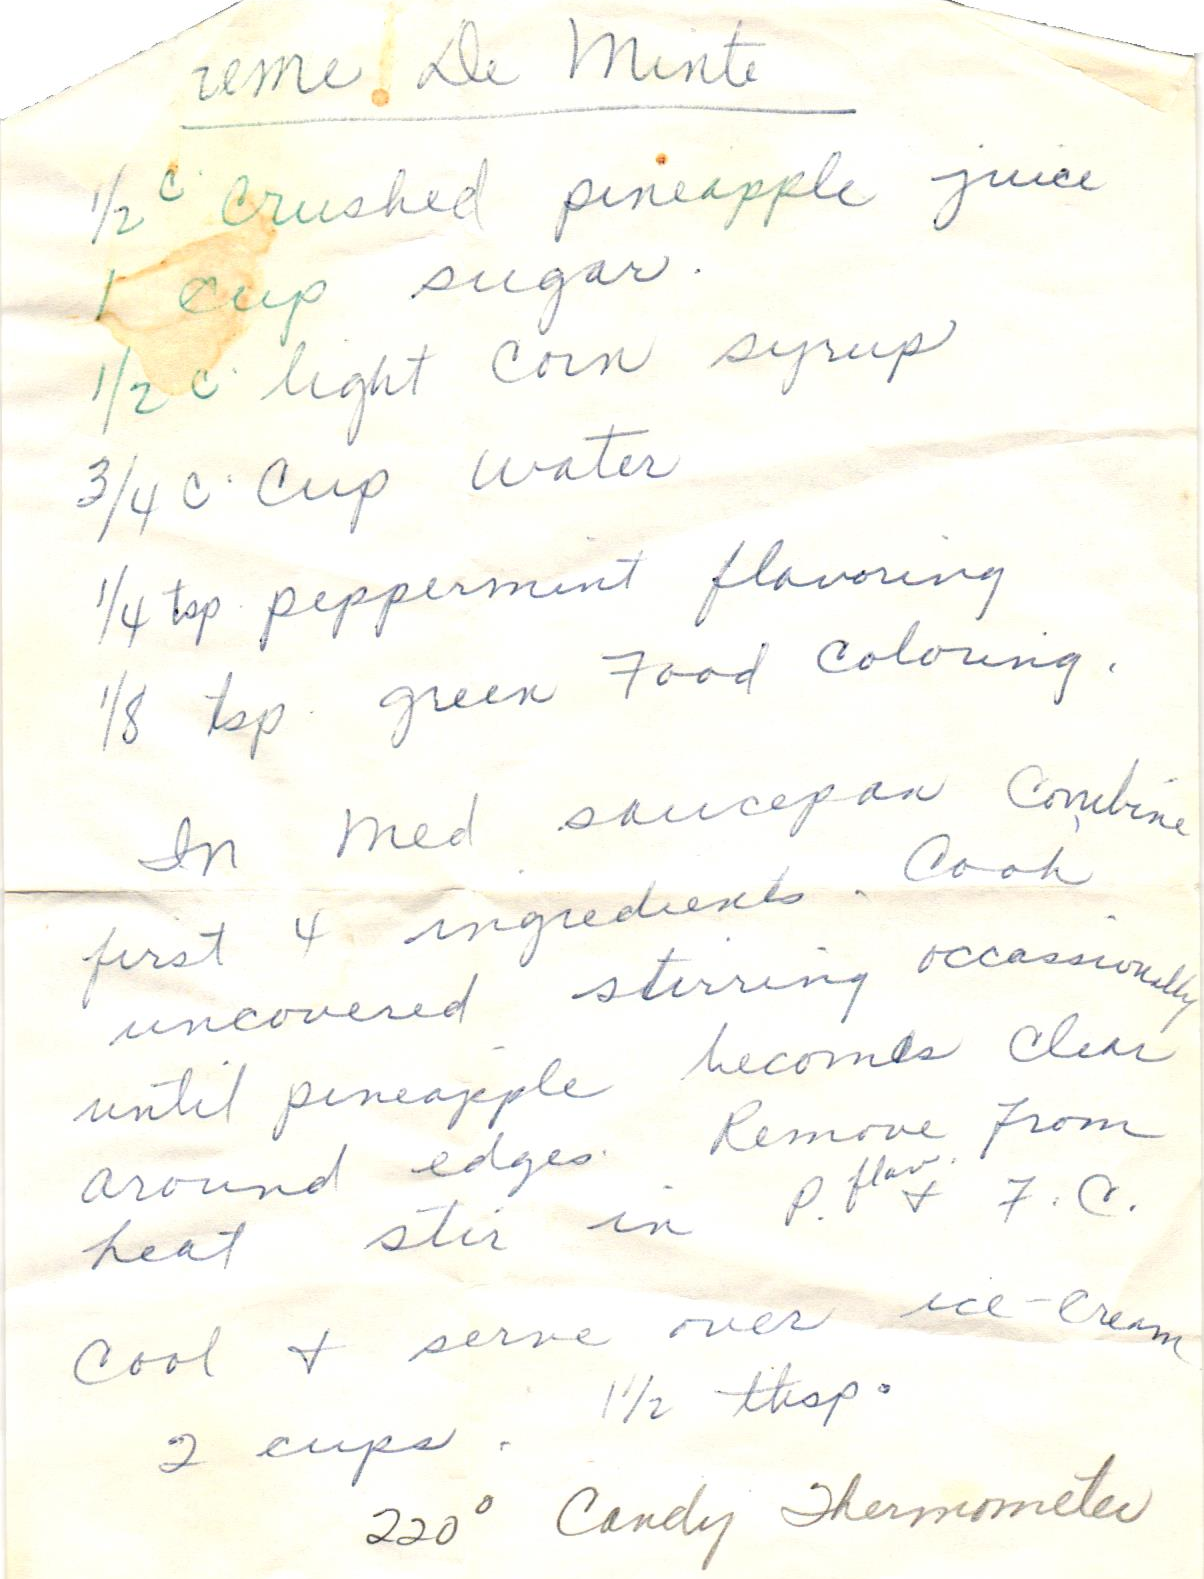 reme De Minte
1/2 c. Crushed pineapple juice
1 Cup sugar.
1/2 c. light Corn syrup
3/4 c. Cup water
1/4 tsp. peppermint flavoring
1/8 tsp. green Food Coloring.
In Med saucepan Combine
first 4 ingredients. Cook
uncovered stirring occassionally
until pineapple becomes clear
around edges. Remove From
heat stir in P. flav. + F. C.
Cool + serve over ice-cream
2 cups. 1 1/2 tbsp.
220° Candy Thermometer